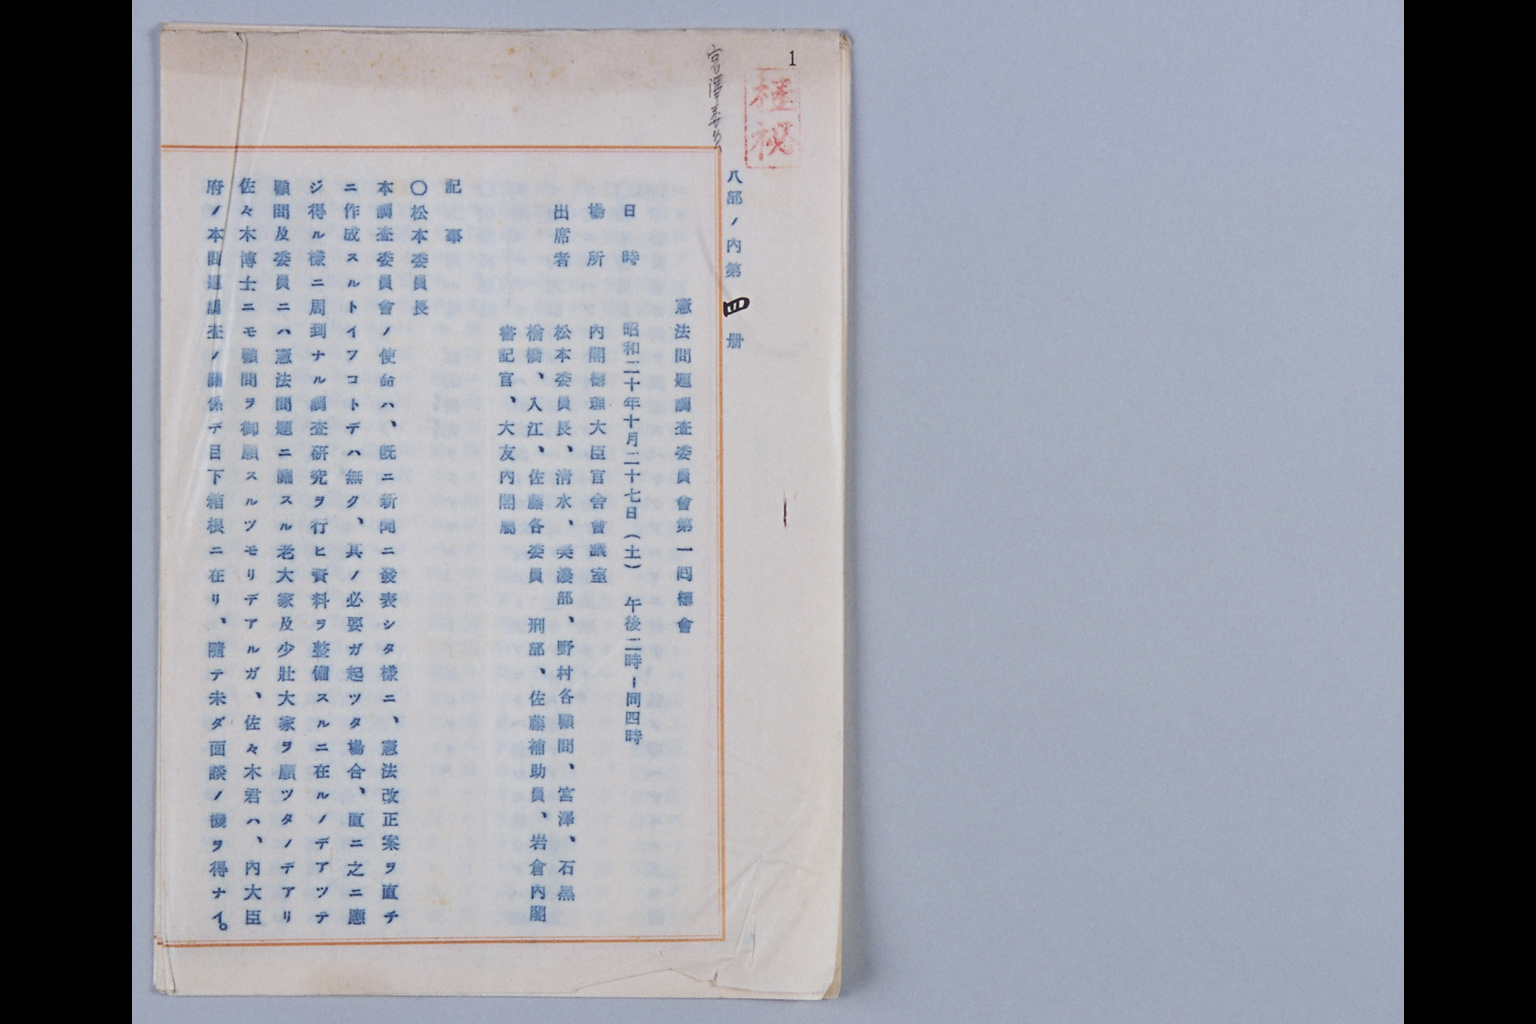 1
極秘
宮澤委員
八部ノ內第四册
憲法問題調査委員會第一囘總會
日時 昭和二十年十月二十七日(土) 午後二時ー同四時
場所 內閣總理大臣官舍會議室
出席者 松本委員長、淸水、美濃部、野村各顧問、宮澤、石黑
楢橋、入江、佐藤各委員 刑部、佐藤補助員、岩倉內閣
書記官、大友內閣屬
記事
〇松本委員長
本調査委員會ノ使命ハ、旣ニ新聞ニ發表シタ樣ニ、憲法改正案ヲ直チ
ニ作成スルトイフコトデハ無ク、其ノ必要ガ起ツタ場合、直ニ之ニ應
ジ得ル樣ニ周到ナル調査硏究ヲ行ヒ資料ヲ整備スルニ在ルノデアツテ
顧問及委員ニハ憲法問題ニ關スル老大家及少壯大家ヲ願ツタノデアリ
佐々木博士ニモ顧問ヲ御願スルツモリデアルガ、佐々木君ハ、內大臣
府ノ本問題調査ノ關係デ目下箱根ニ在リ、隨テ未ダ面談ノ機ヲ得ナイ。